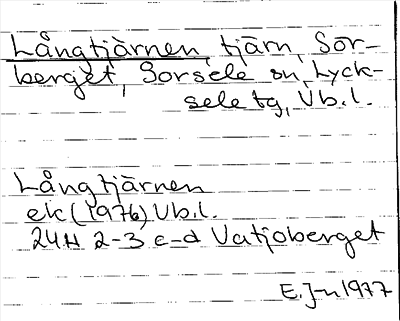 Långtjärnen, tjärn, Sör-
berget, Sorsele sn, Lyck-
sele tg, Vb.l.
Långtjärnen
ek (1976) Vb.l.
24H 2-3 c-d Vatjoberget
E.J-n 1977